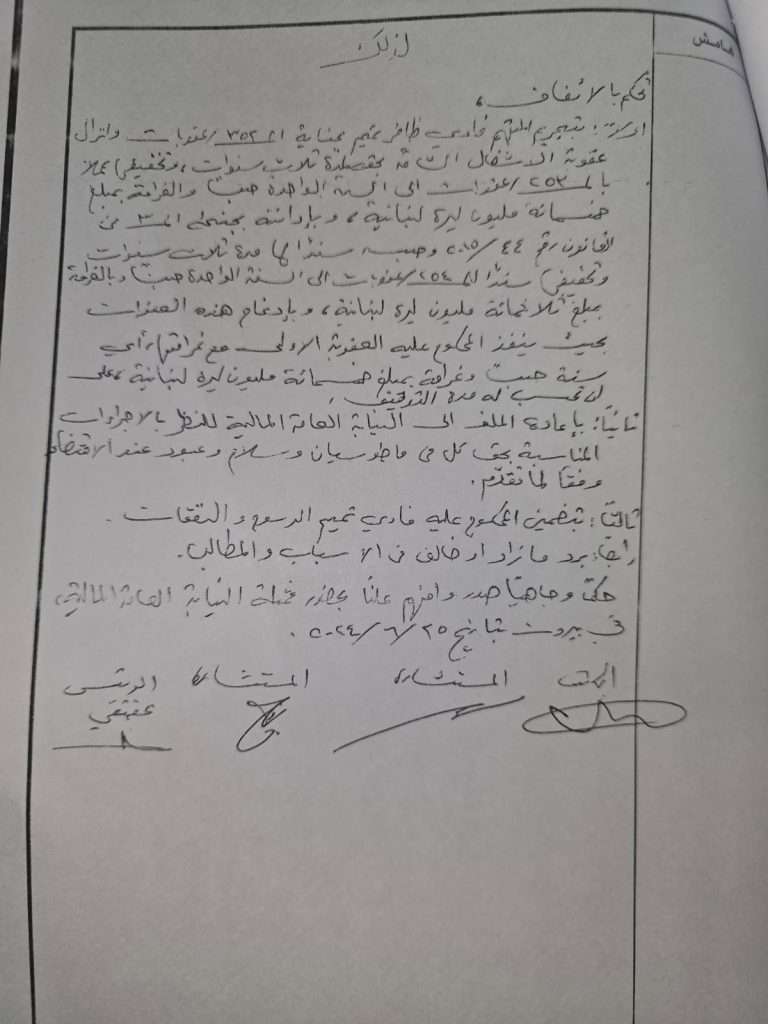 هامش
لذلك
تحكم بالاتفاق،
اولاً: بتجريم المتهم فادي ظافر تميم بجناية الم ٣٥٢/عقوبات وانزال
عقوبة الاشغال الشاقة بحقه لمدة ثلاث سنوات، وتخفيفها عملاً
بالم ٢٥٣/عقوبات الى السنة الواحدة حبساً والغرامة بمبلغ
خمسمائة مليون ليرة لبنانية، وبإدانته بجنحة الم ٣ من
القانون رقم ٤٤/٢٠١٥ وحبسه سنداً لها مدة ثلاث سنوات
وتخفيفها سنداً للم ٢٥٤/عقوبات الى السنة الواحدة حبساً وبالغرامة
بمبلغ ثلاثمائة مليون ليرة لبنانية، وبإدغام هذه العقوبات
بحيث ينفذ المحكوم عليه العقوبة الاولى مع غرامتها، أي
سنة حبس وغرامة بمبلغ خمسمائة مليون ليرة لبنانية، على
ان تحسب له مدة التوقيف.
ثانياً: بإعادة الملف الى النيابة العامة المالية للنظر بالاجراءات
المناسبة بحق كل من ماطوسيان وسلام وعبود عند الاقتضاء
وفقاً لما تقدّم.
ثالثاً: بتضمين المحكوم عليه فادي تميم الرسوم والنفقات.
رابعاً: برد ما زاد او خالف من الاسباب والمطالب.
حكماً وجاهياً صدر وافهم علناً بحضور ممثلة النيابة العامة المالية،
في بيروت بتاريخ ٢٥/٦/٢٠٢٤.
الكاتب المستشارة المستشارة الرئيس
عفيفي